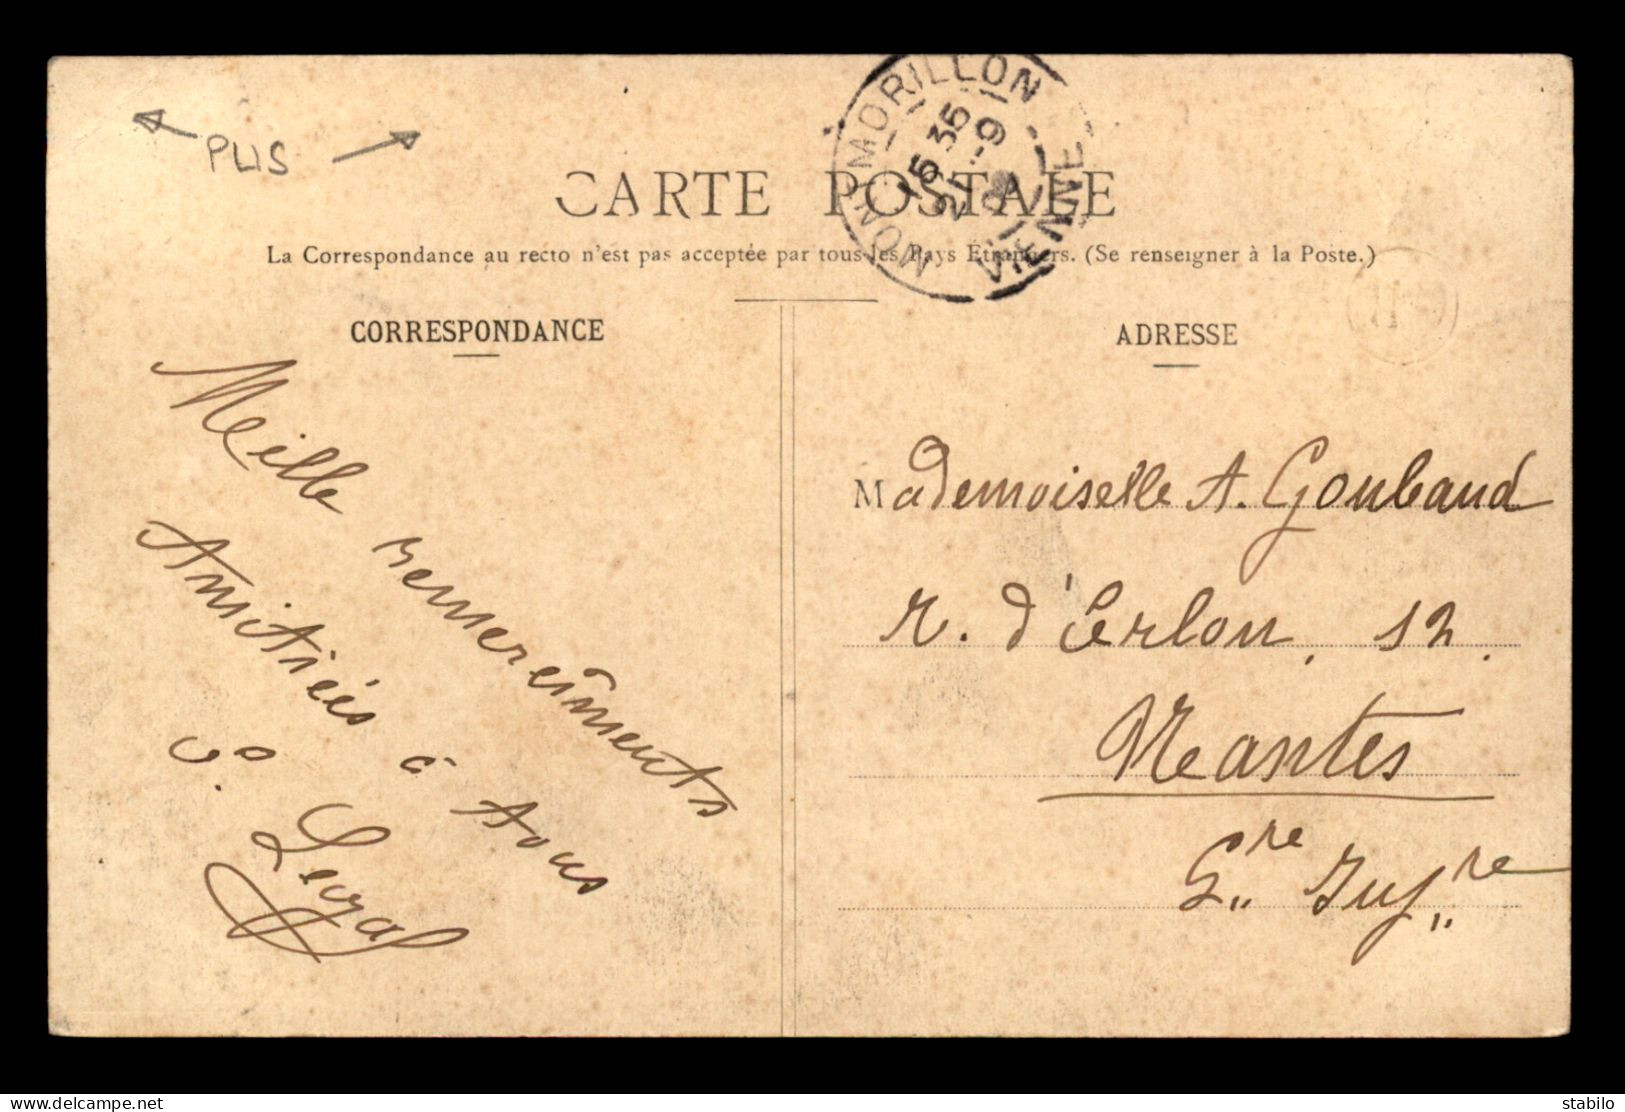 PLIS
MONTMORILLON
15 35
21 -9
VIENNE
CARTE POSTALE
La Correspondance au recto n'est pas acceptée par tous les Pays Étrangers. (Se renseigner à la Poste.)
CORRESPONDANCE
Meille remereiments
Amitiées à tous
C. Leyal
ADRESSE
Mademoiselle A. Goubaud
r. d'Erlon, 12.
Nantes
Gre Infre
delcampe.net
stabilo